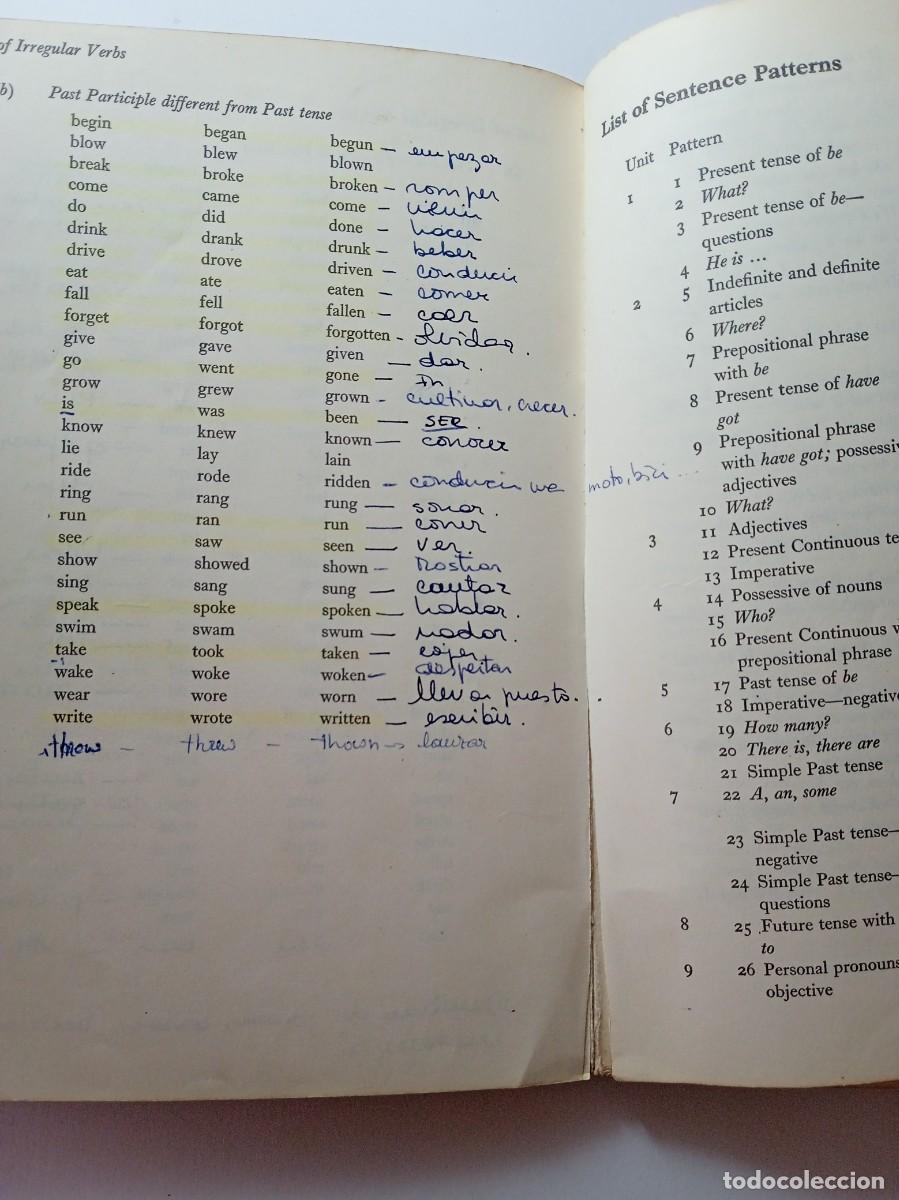 of Irregular Verbs
b) Past Participle different from Past tense
begin began begun — empezar
blow blew blown
break broke broken — romper
come came come — venir
do did done — hacer
drink drank drunk — beber
drive drove driven — conducir
eat ate eaten — comer
fall fell fallen — caer
forget forgot forgotten - olvidar.
give gave given — dar.
go went gone — Ir
grow grew grown - cultivar, crecer.
is was been — SER.
know knew known — conocer
lie lay lain
ride rode ridden — conducir una moto, bici ...
ring rang rung — sonar.
run ran run — correr
see saw seen — ver.
show showed shown — mostrar
sing sang sung — cantar
speak spoke spoken — hablar.
swim swam swum — nadar.
take took taken — cojer
wake woke woken — despertar
wear wore worn — llevar puesto..
write wrote written — escribir.
throw — threw — thown — lanzar
List of Sentence Patterns
Unit Pattern
1 1 Present tense of be
2 What?
3 Present tense of be—
questions
4 He is ...
2 5 Indefinite and definite
articles
6 Where?
7 Prepositional phrase
with be
8 Present tense of have
got
9 Prepositional phrase
with have got; possessiv
adjectives
10 What?
3 11 Adjectives
12 Present Continuous te
13 Imperative
4 14 Possessive of nouns
15 Who?
16 Present Continuous w
prepositional phrase
5 17 Past tense of be
18 Imperative—negative
6 19 How many?
20 There is, there are
21 Simple Past tense
7 22 A, an, some
23 Simple Past tense—
negative
24 Simple Past tense—
questions
8 25 Future tense with
to
9 26 Personal pronouns
objective
todocoleccion